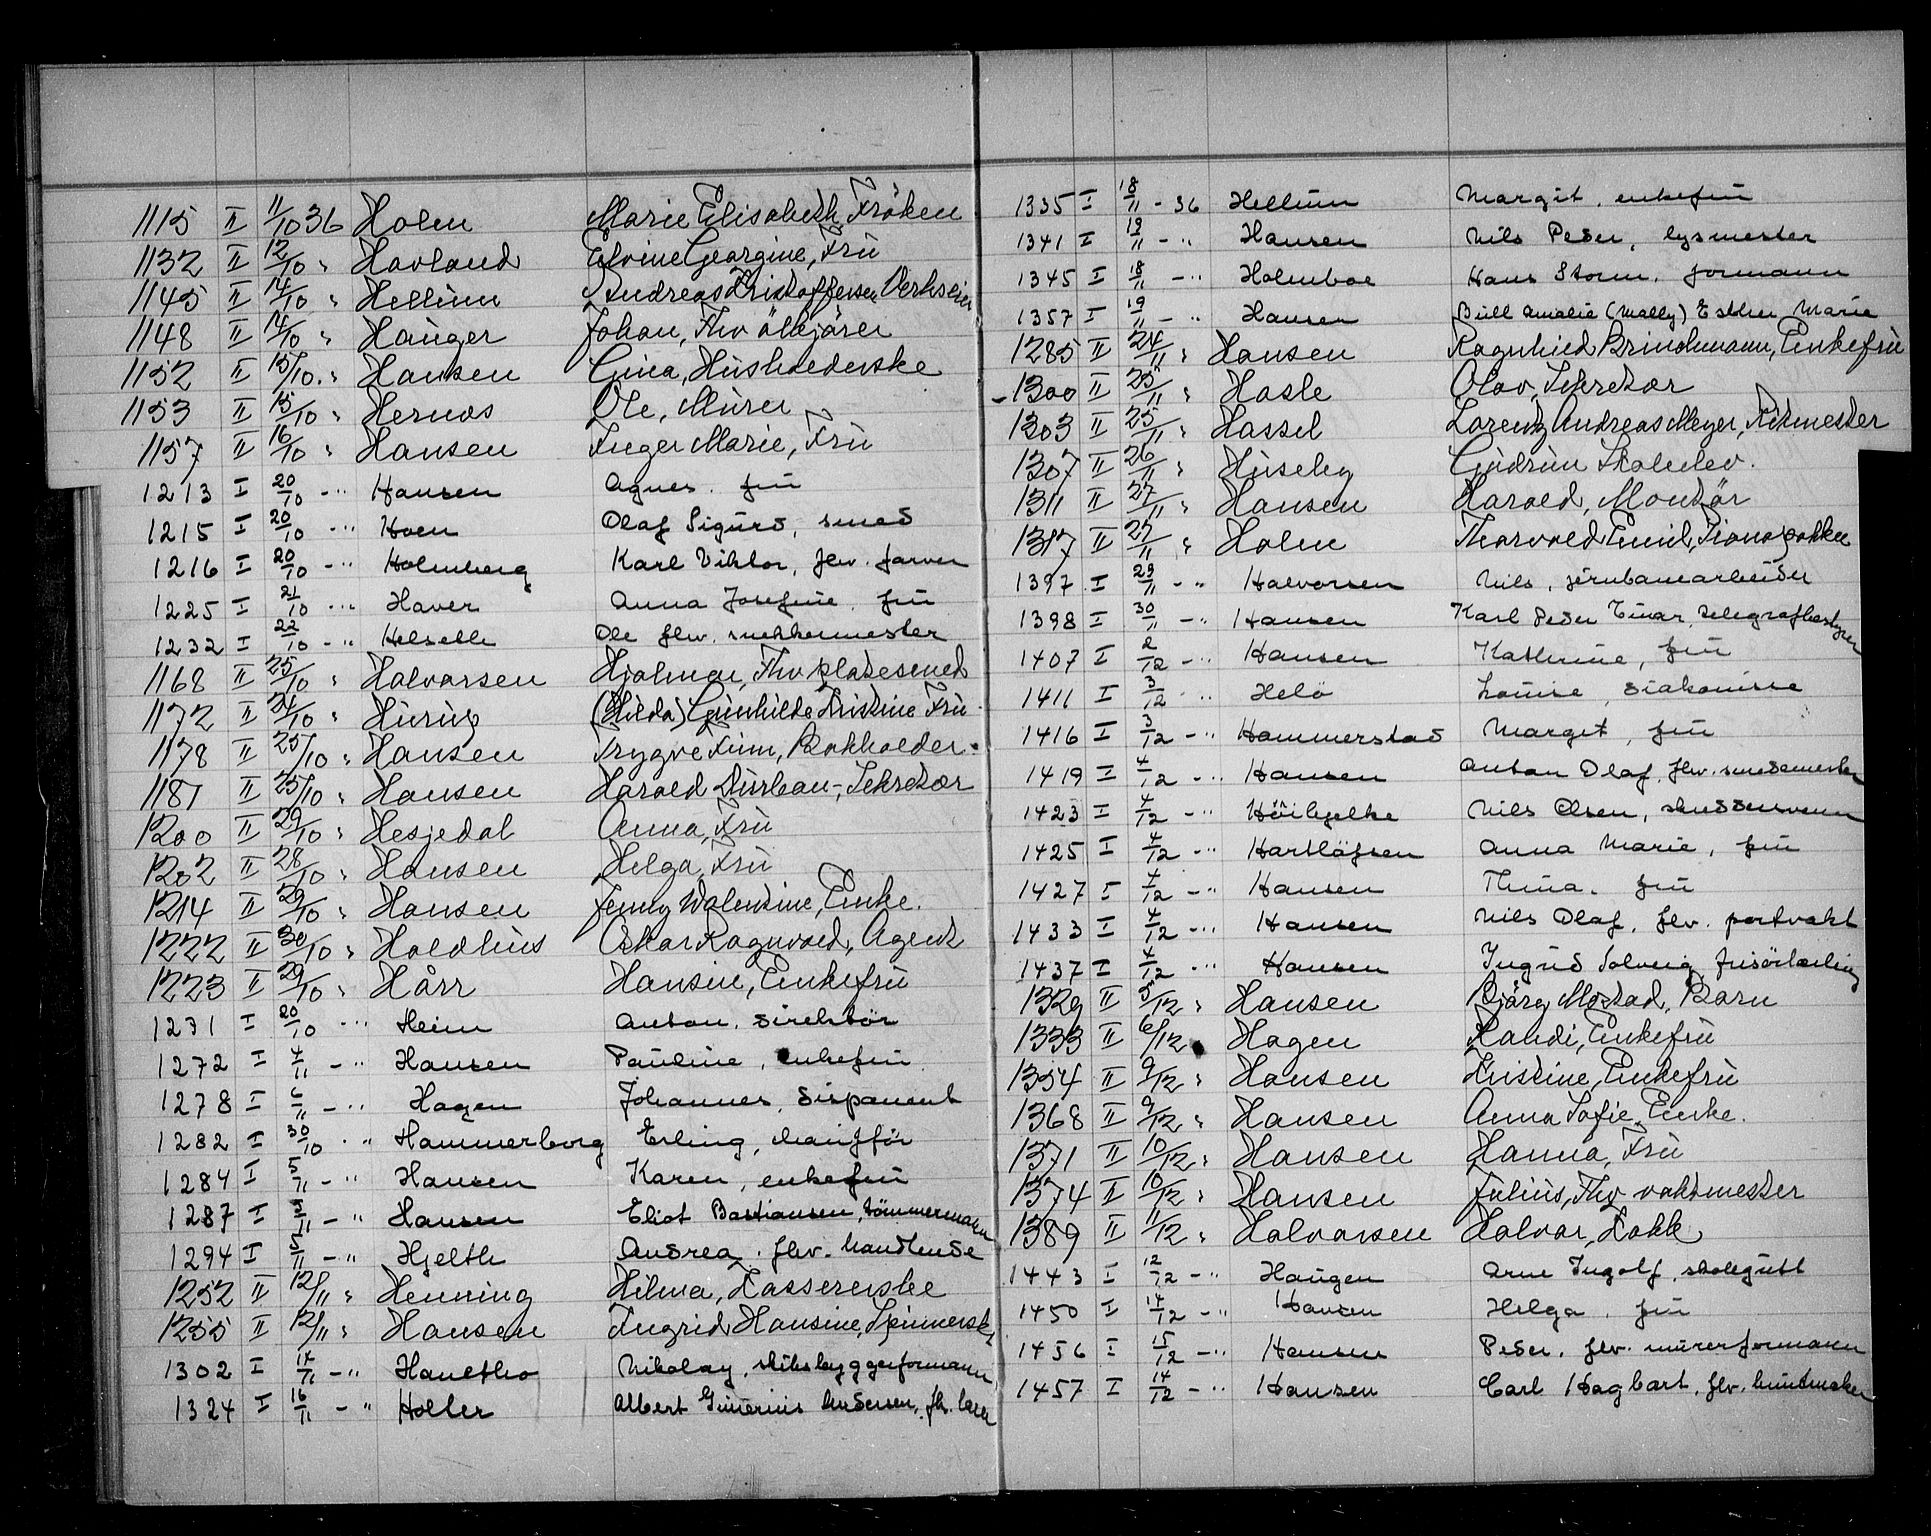 1115 II 11/10 36 Holm Marie Elisabeth, Fröken
1132 II 12/10 " Havland Elvine Georgine, Fru
1145 II 14/10 " Hellum Andreas Kristoffersen Verkseier
1148 II 14/10 " Hauger Johan, Fhv ölkjörer
1152 II 15/10 " Hansen Gina, Husholderske
1153 II 15/10 " Hernæs Ole, Murer
1157 II 16/10 " Hansen Inger Marie, Fru
1213 I 20/10 - " Hansen Agnes. fru
1215 I 20/10 - " Hoen Olaf Sigurd, smed
1216 I 20/10 - " Holmberg Karl Viktor, fhv. farver
1225 I 21/10 - " Haver Anna Josefine. fru
1232 I 22/10 - " Helselle Ole fhv. snekkermester
1168 II 25/10 " Halvorsen Hjalmar, Fhv platesmed
1172 II 24/10 " Hurug (Hilda) Gunhilde Kristine Fru
1178 II 25/10 " Hansen Trygve Finn, Bokholder.
1181 II 25/10 " Hansen Harald Durban-, Sekretær
1200 II 29/10 " Hesjedal Anna, Fru
1202 II 28/10 " Hansen Helga, Fru
1214 II 29/10 " Hansen Jenny Walentine, Enke.
1222 II 30/10 " Holdhus Oskar Ragnvald, Agent
1223 II 29/10 " Hårr Hansine, Enkefru
1271 I 20/10 - " Heim Anton. direktör
1272 I 4/11 - " Hansen Pauline, enkefru
1278 I 6/11 - " Hagen Johannes, disponent
1282 I 30/10 - " Hammerborg Erling, chaufför
1284 I 5/11 - " Hansen Karen, enkefru
1287 I 5/11 - " Hansen Eliot Bastiansen, tömmermann
1294 I 5/11 - " Hjelth Andrea. fhv. handlende
1252 II 12/11 " Henning Hilma, Kassererske
1255 II 12/11 " Hansen Ingrid Hansine, Spinnerske
1302 I 14/11 - " Hanetho Nikolay, skibsbyggerformann
1324 I 16/11 - " Holler Albert Andersen, fh. lærer
1335 I 18/11 - 36 Hellum Margit. enkefru
1341 I 19/11 - " Hansen Nils Peder, lysmester
1345 I 18/11 - " Holmboe Hans Storm. formann
1357 I 19/11 - " Hansen Bull Amalie (Mally) Esther Marie
1285 II 24/11 " Hansen Ragnhild Brinchmann, Enkefru
1300 II 25/11 " Hasle Olav, Sekretær
1303 II 25/11 " Hassel Lorentz Andreas Meyer, Ritmester
1307 II 26/11 " Huseby Gudrun Skoleelev.
1311 II 27/11 " Hansen Harald, Montör
1317 II 27/11 " Holm Thorvald Emil, Pianopakker
1397 I 29/11 - " Halvorsen Nils, jernbanearbeider
1398 I 30/11 - " Hansen Karl Peder Einar, telegrafbestyrer
1407 I 2/12 - " Hansen Kathrine, fru
1411 I 3/12 - " Helö Louise, diakonisse
1416 I 3/12 - " Hammerstad Margit, fru
1419 I 4/12 - " Hansen Anton Olaf, fhv. smedemester
1423 I 4/12 - " Höibyelke Nils Olsen,
1425 I 4/12 - " Hartløfsen Anna Marie, fru
1427 I 4/12 - " Hansen Thina. fru
1433 I 4/12 - " Hansen Nils Olaf, fhv. portvakt
1437 I 4/12 - " Hansen Ingrid Solveig, frisörlærling
1329 II 5/12 " Hansen Bjørg Mostad, Barn
1333 II 6/12 Hagen Randi, Enkefru
1354 II 9/12 " Hansen Kristine, Enkefru
1368 II 9/12 " Hansen Anna Sofie, Enke.
1371 II 10/12 " Hansen Hanna, Fru
1374 II 10/12 " Hansen Julius, Fhv vaktmester
1389 II 11/12 " Halvorsen Halvor, Kokk
1443 I 12/12 - " Haugen Arne Ingolf, skolegutt
1450 I 14/12 - " Hansen Helga, fru
1456 I 15/12 - " Hansen Peder, fhv. murerformann
1457 I 14/12 - " Hansen Carl Hagbart, fhv. buntmaker